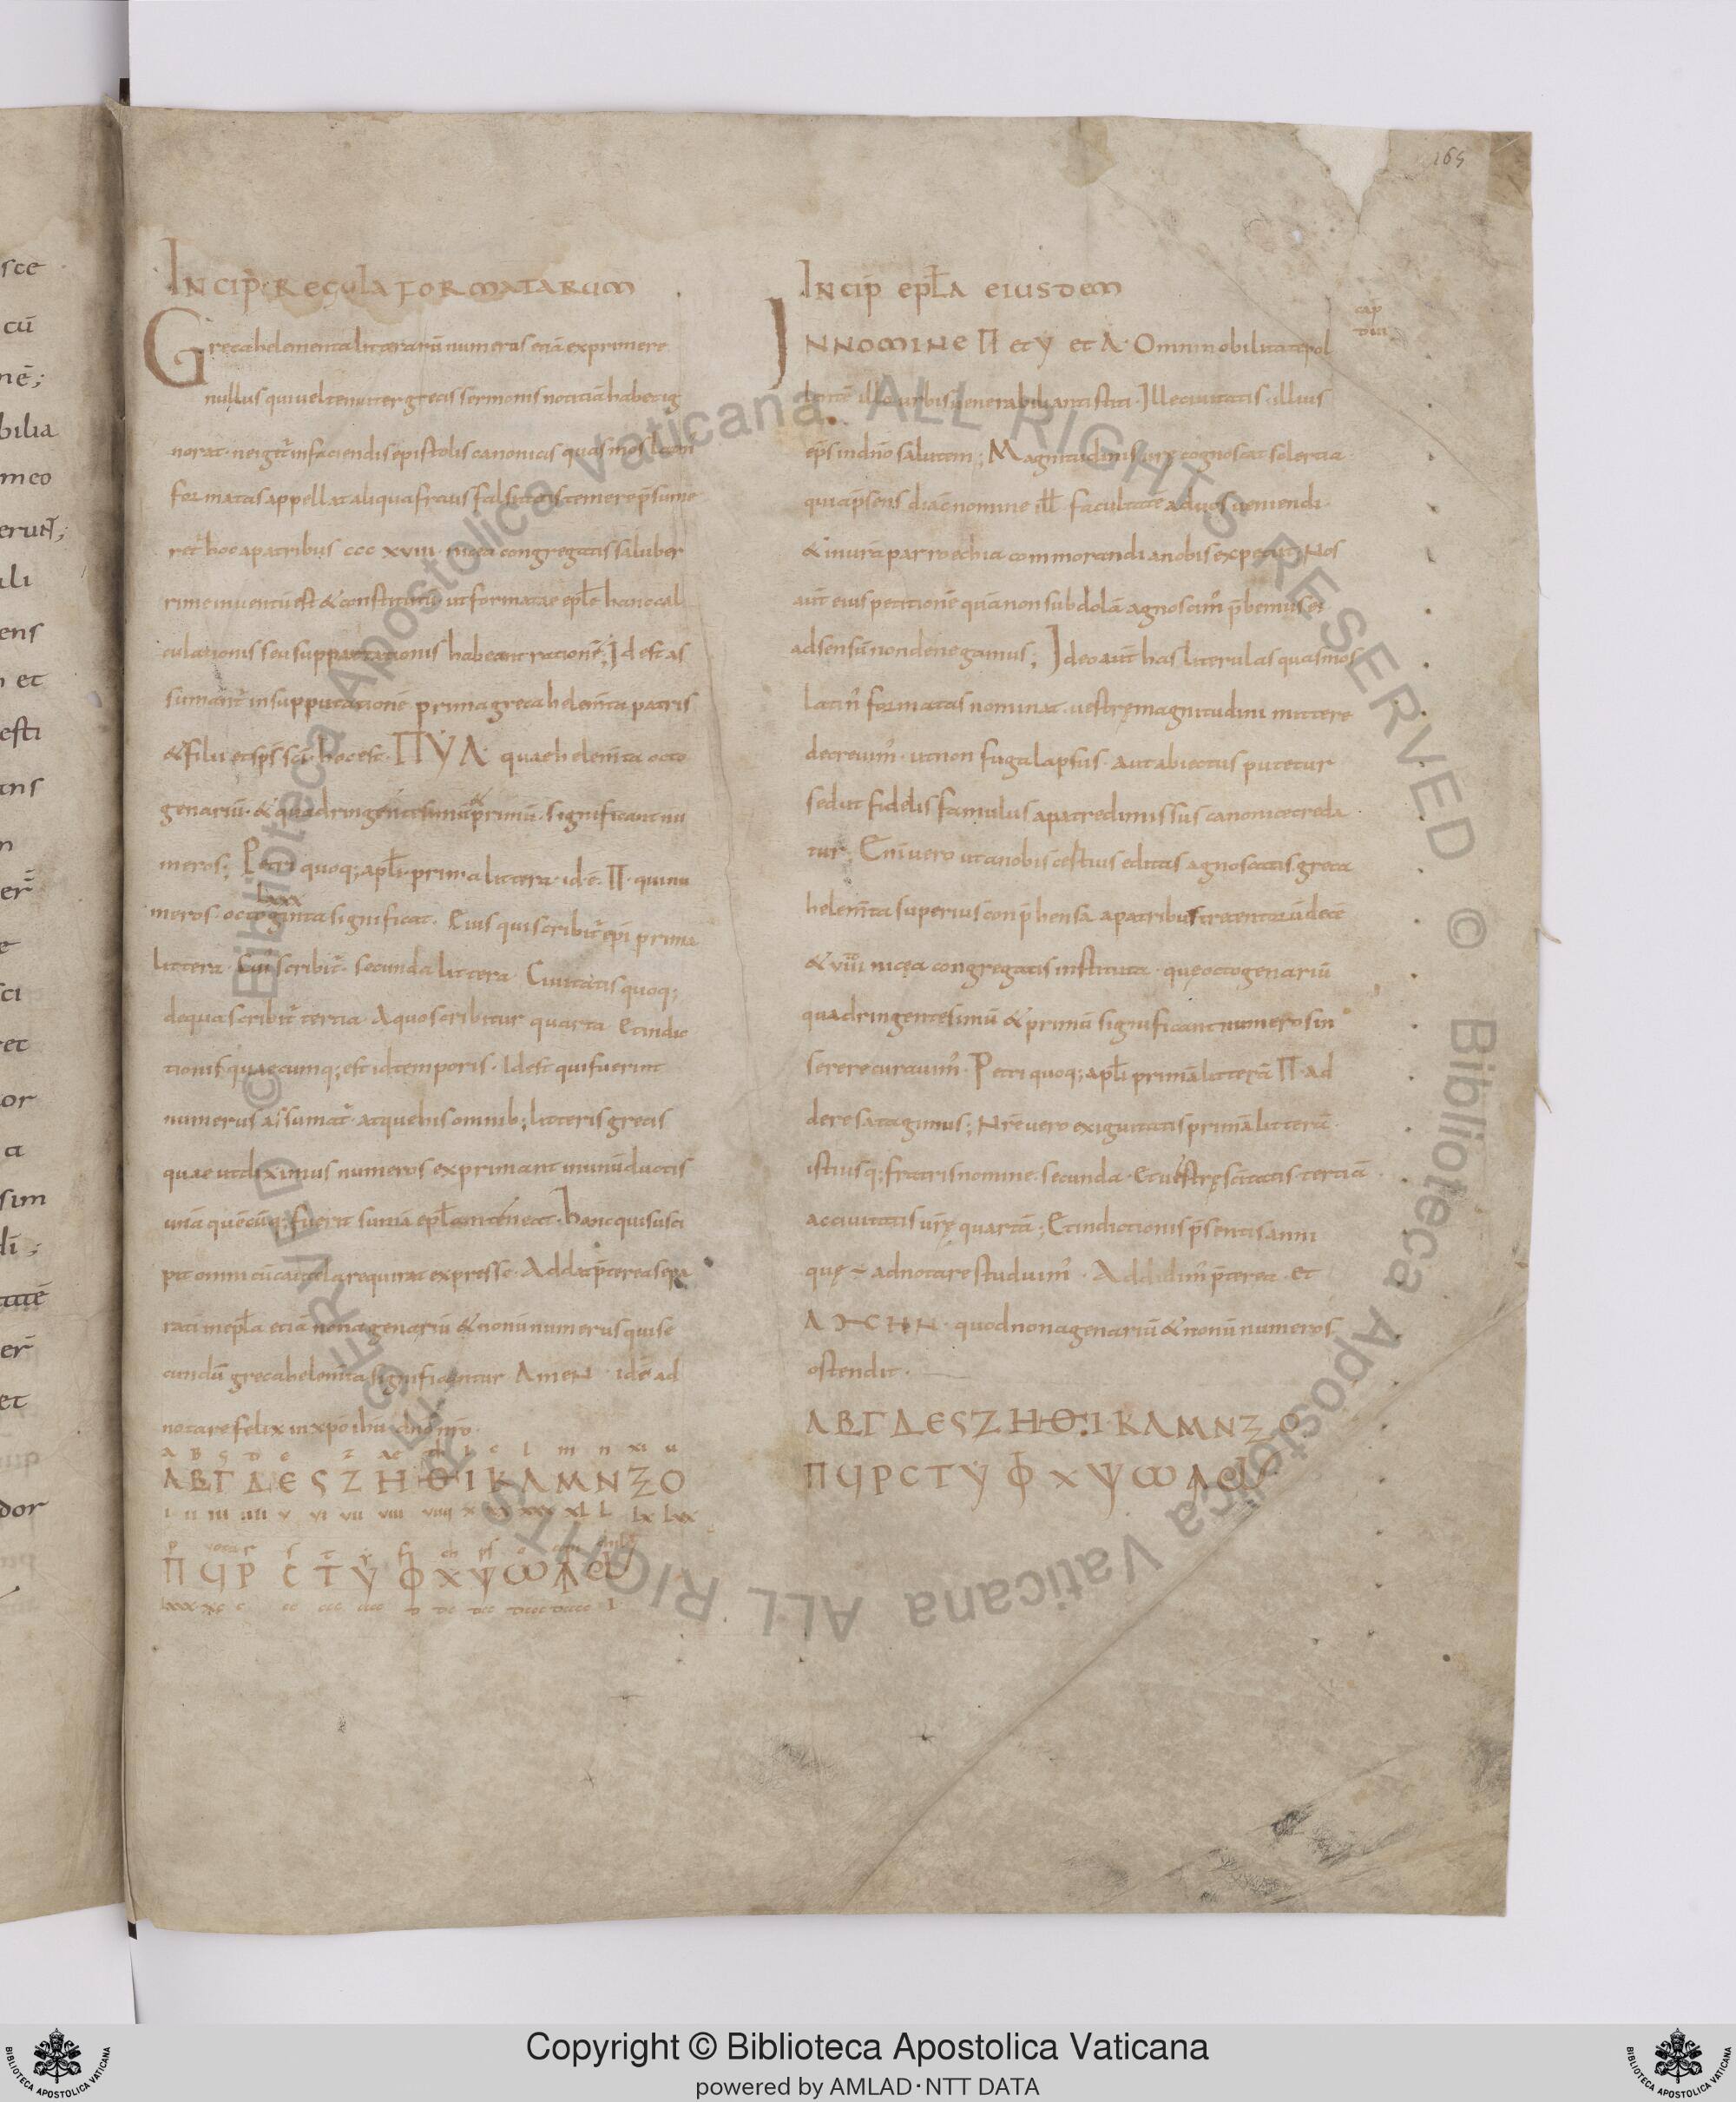 sce
cū
nē;
bilia
meo
ens
et
esti
ans
er
sci
et
or
a
sim
di;
er
et
dor
165
INCIP REGULA FORMATARUM
Greca helementa litterarū numeros etiā exprimere
nullus qui vel tenuiter greci sermonis notitiā habet ig
norat. ne igit in faciendis epistolis canonicis quas mos latin
formatas appellat aliqua fraus falsitatis temere p̄sume
ret hoc a patribus ccc xviii nicea congregatis saluber
rime inventū est & constitutū ut formatae epłe hanc cal
culationis seu supputationis habeant rationē; Id est as
sumant in supputationē prima greca helem̄ta patris
& filii et sp̄s sc̄i hoc est Π Υ Λ quae helem̄ta octo
genariū & quadringentesimū & primū significant nu
meros; Petri quoq; apłi prima littera id ē Π qui nu
lxxx
meros octoginta significat. Eius qui scribit epī prima
littera. Cui scribit secunda littera. Civitatis quoq;
de qua scribit tertia. A quo scribitur quarta. Et indic
tionis quaecumq; est id temporis. Id est qui fuerint
numerus assumat. atque his omnib; litteris grecis
quae ut diximus numeros exprimant in unū ductis
unā quēcūq; fuerit summā epła conteneat. Hanc qui susci
pit omni cū cautela requirat expresse. Addat p̄terea sepa
rati in epła etiā nonagenariū & nonū numerus qui se
cundū greca helem̄ta significantur AMEN idē ad
notare felix in xpo ihu dno nro.
Α Β Γ Δ Ε Ϛ Ζ Η Θ Ι Κ Λ Μ Ν Ξ Ο
i ii iii iiii v vi vii viii viiii x xx xxx xl l lx lxx
Π Ϥ Ρ С Τ Υ Φ Χ Ψ Ω
INCIP EPŁA EIUSDEM
cap
IN NOMINE Π et Υ et Λ. Omni nobilitate pol
lentē illo urbis venerabili antistiti. Ille civitatis illius
ep̄s in dn̄o salutem; Magnitudinis vr̄ę cognoscat solertia
quia p̄sens diac̄ nomine ill facultatē ad vos veniendi
& in vr̄a parroechia commorandi a nobis expetiit; Nos
aut eius petitionē quā non subdolā agnoscim p̄bemus et
adsensū non denegamus; Ideo aut has literulas quas mos
latin formatas nominat. vestrę magnitudini mittere
decrevim. ut non fuga lapsus. aut abiectus putetur
sed ut fidelis famulus a patre dimissus canonice creda
tur; Enī vero ut a nobis cestius editas agnoscatis greca
helem̄ta superius conp̄hensa a patribus trecentorū decē
& viii nicęa congregatis instituta. quę octogenariū
quadringentesimū & primū significant numeros in
serere curavim. Petri quoq; apłi primā litterā Π ad
dere satagimus; Nr̄e vero exiguitatis primā litterā
istiusq; fratris nomine secunda. Et vestrę scītatis tertiā
ac civitatis vr̄ę quartā; Et indictionis p̄sentis anni
quę ÷ adnotare studuim. Addidim p̄terea et
quod nonagenariū & nonū numeros
ostendit.
Α Β Γ Δ Ε Ϛ Ζ Η Θ Ι Κ Λ Μ Ν Ξ Ο
Π Ϥ Ρ С Τ Υ Φ Χ Ψ Ω
© Biblioteca Apostolica Vaticana ALL RIGHTS RESERVED © Biblioteca Apostolica Vaticana ALL RIGHTS RESERVED
Copyright © Biblioteca Apostolica Vaticana
powered by AMLAD·NTT DATA
BIBLIOTECA APOSTOLICA VATICANA
BIBLIOTECA APOSTOLICA VATICANA